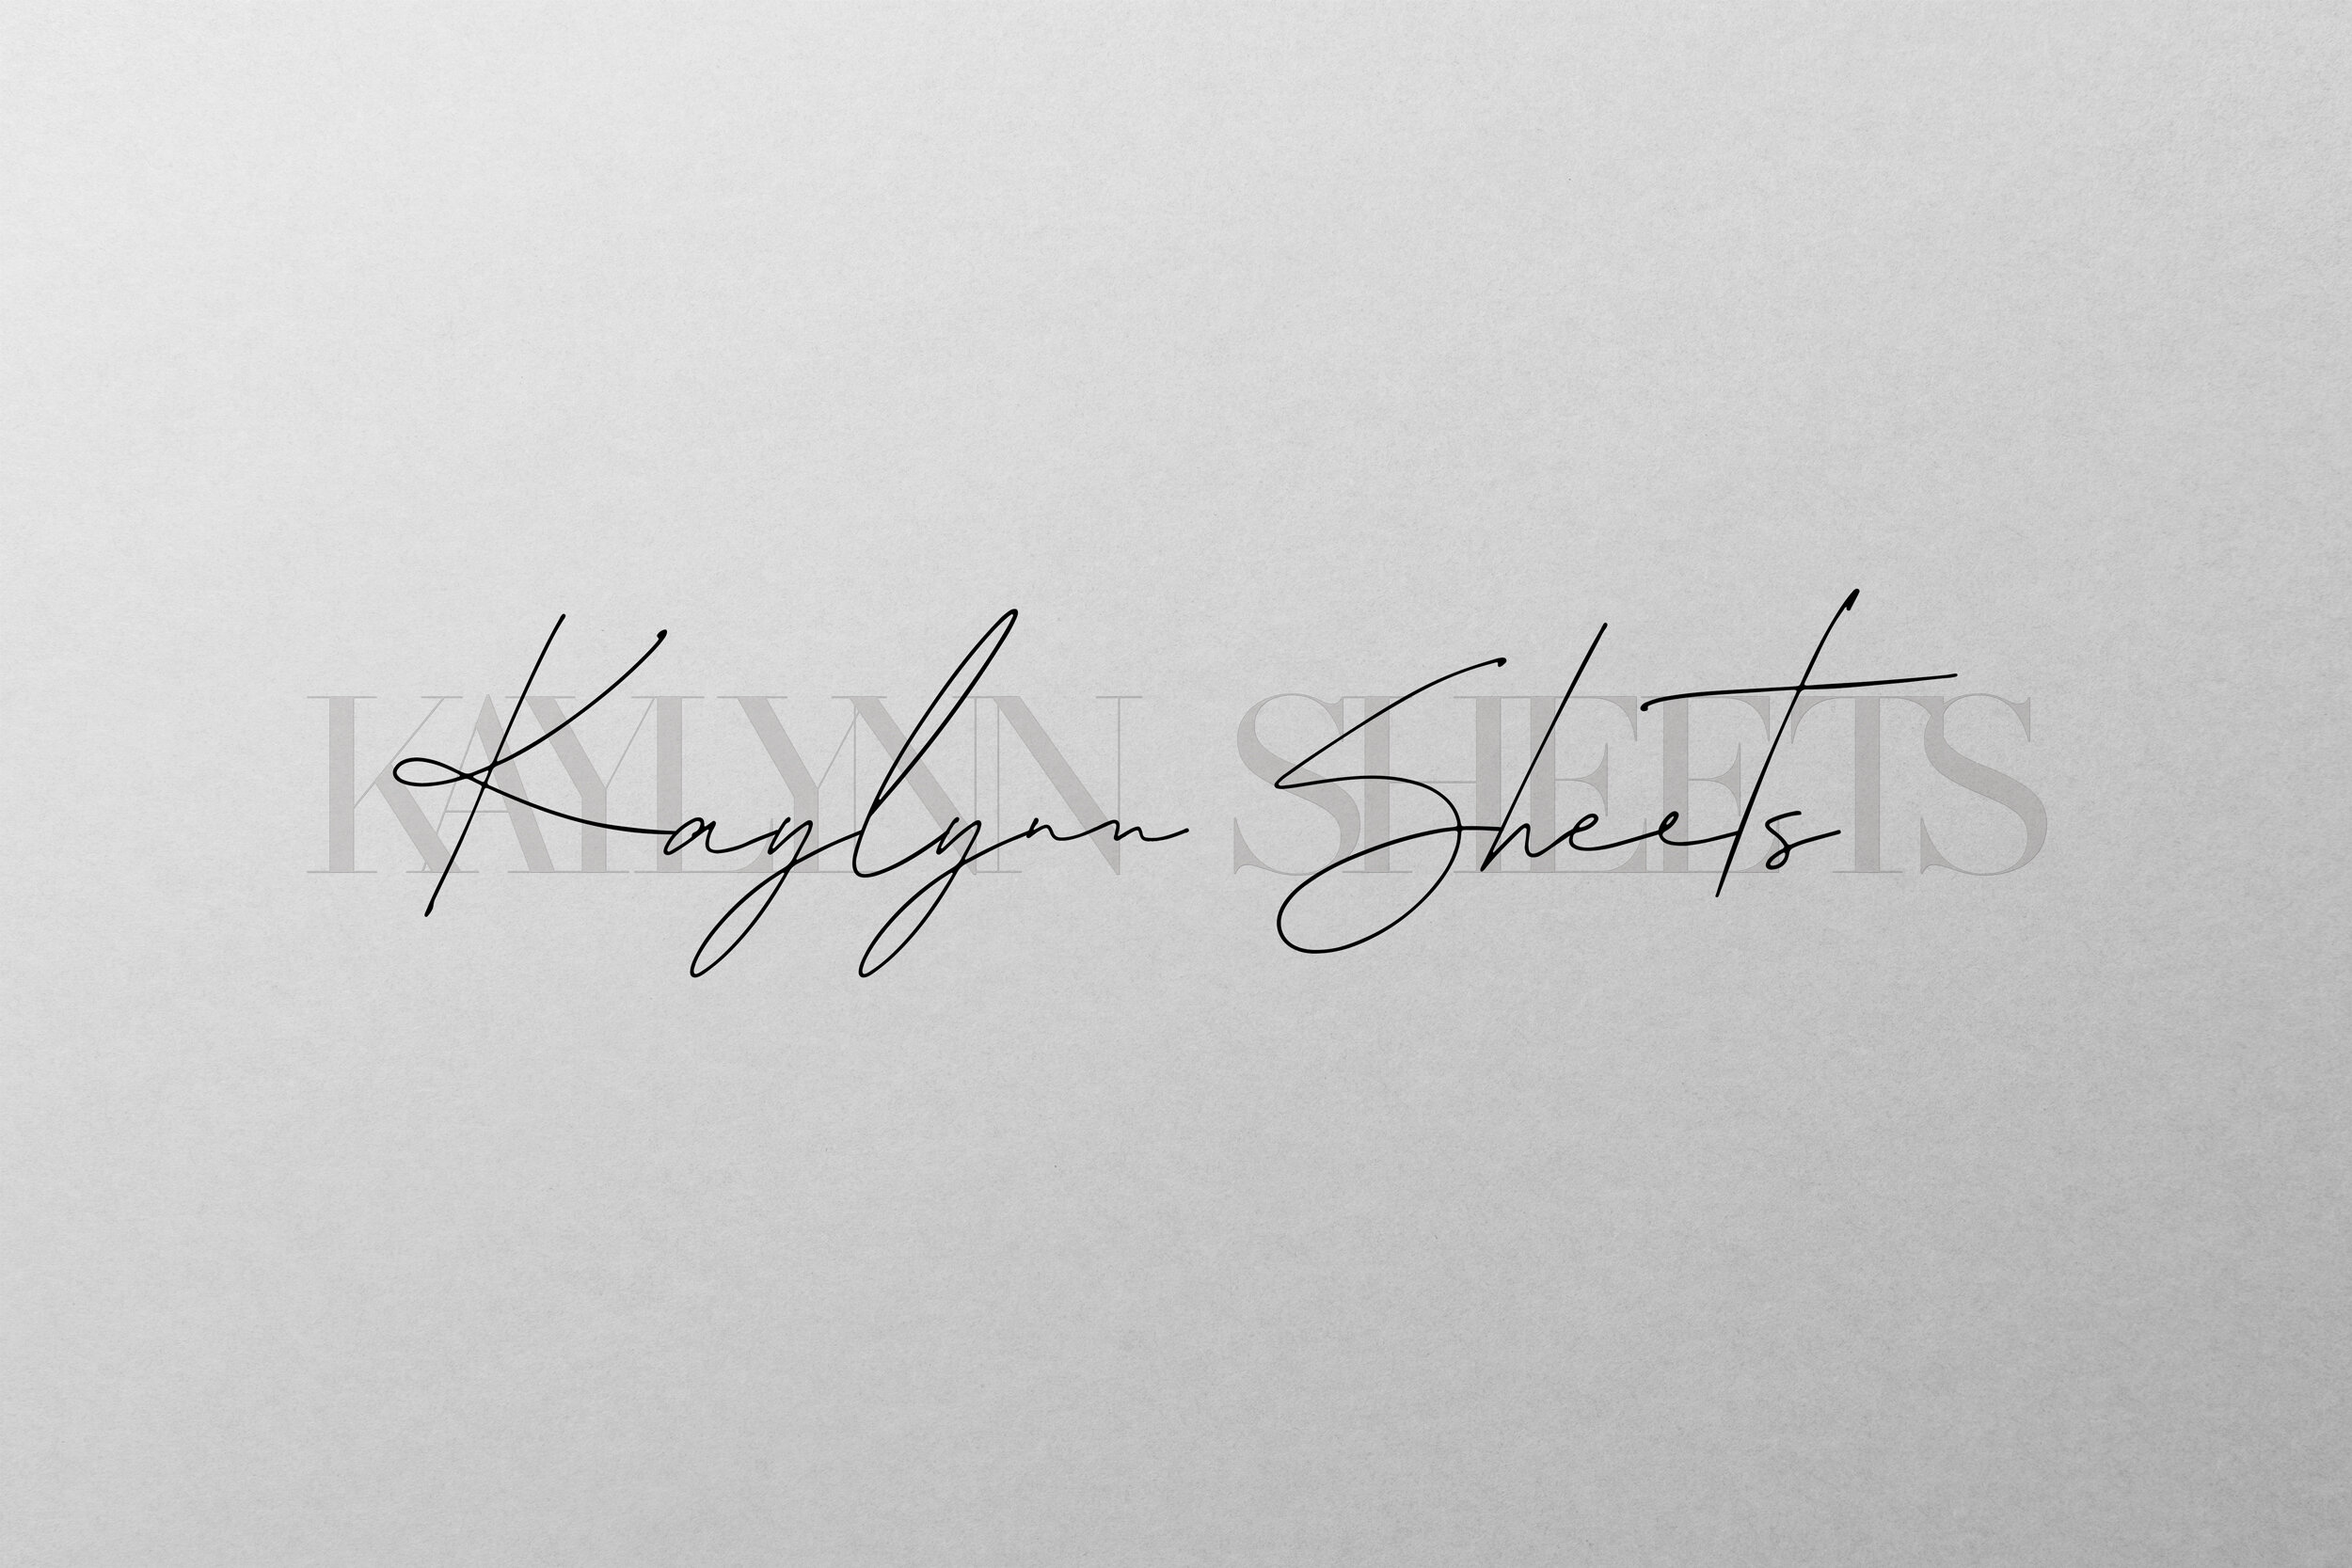 KAYLYNN SHEETS
Kaylynn Sheets